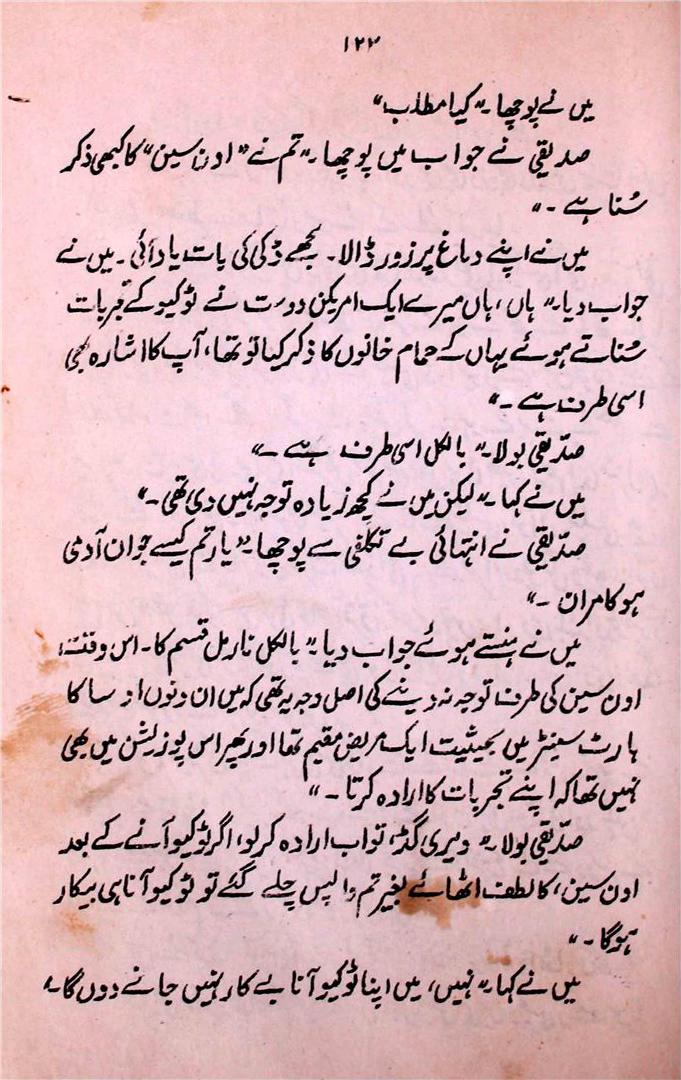 ۱۲۳
میں نے پوچھا۔" کیا مطلب"
صدیقی نے جواب میں پوچھا۔" تم نے " اون سین" کا کبھی ذکر
سُنا ہے ۔"
میں نے اپنے دماغ پر زور ڈالا۔ مجھے ڈکی کی بات یاد آئی۔ میں نے
جواب دیا۔" ہاں، ہاں میرے ایک امریکن دوست نے ٹوکیو کے تجربات
سُناتے ہوئے یہاں کے حمام خانوں کا ذکر کیا تو تھا، آپ کا اشارہ بھی
اسی طرف ہے ۔"
صدّیقی بولا۔" بالکل اسی طرف ہے ۔"
میں نے کہا۔" لیکن میں نے کچھ زیادہ توجہ نہیں دی تھی۔"
صدّیقی نے انتہائی بے تکلفی سے پوچھا۔" یار تم کیسے جوان آدمی
ہو کامران ۔"
میں نے ہنستے ہوئے جواب دیا۔" بالکل نارمل قسم کا۔ اس وقت
اون سین کی طرف توجہ نہ دینے کی اصل وجہ یہ تھی کہ میں ان دنوں اوساکا
ہارٹ سینٹر میں بحیثیت ایک مریض مقیم تھا اور پھر اس پوزیشن میں بھی
نہیں تھا کہ اپنے تجربات کا ارادہ کرتا ۔"
صدّیقی بولا۔" ویری گڈ، تو اب ارادہ کرلو، اگر ٹوکیو آنے کے بعد
اون سین، کا لطف اٹھائے بغیر تم واپس چلے گئے تو ٹوکیو آنا ہی بیکار
ہوگا ۔"
میں نے کہا۔" نہیں، میں اپنا ٹوکیو آنا بے کار نہیں جانے دوں گا۔"